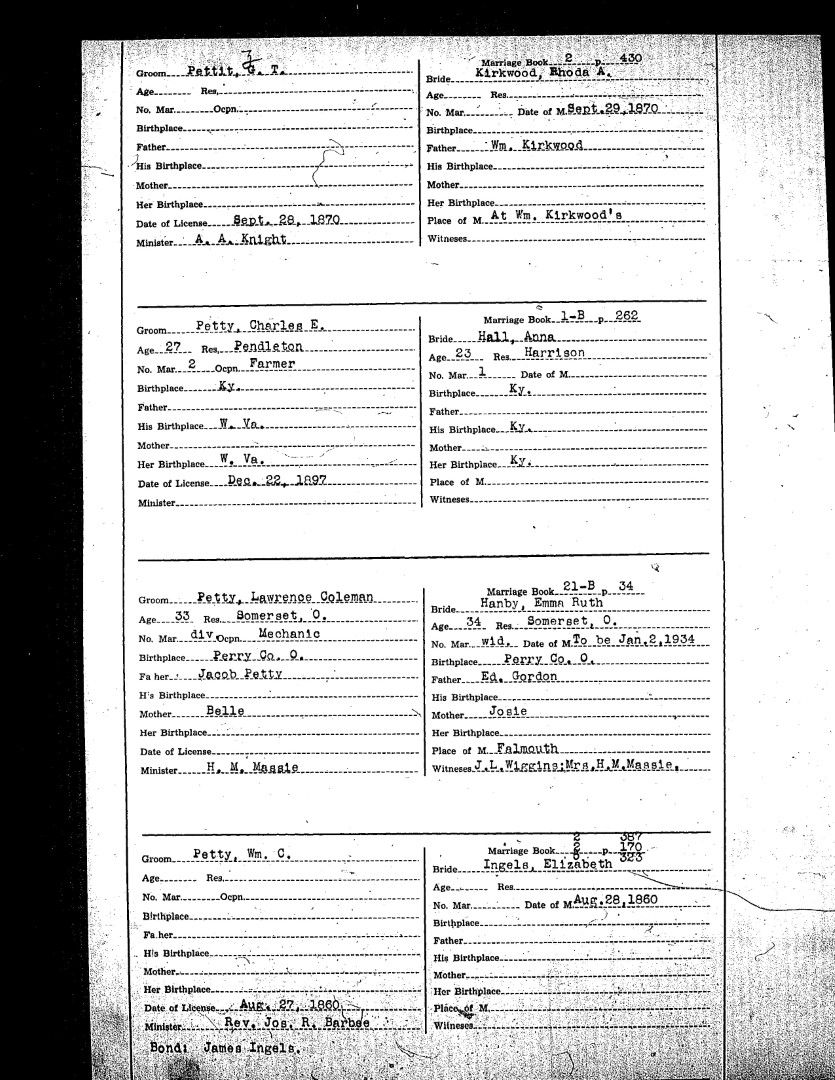 Groom Pettit, G. T.
Age Res.
No. Mar. Ocpn.
Birthplace
Father
His Birthplace
Mother
Her Birthplace
Date of License Sept. 28, 1870
Minister A. A. Knight
Marriage Book 2 p. 430
Bride Kirkwood, Rhoda A.
Age Res.
No. Mar. Date of M. Sept. 29, 1870
Birthplace
Father Wm. Kirkwood
His Birthplace
Mother
Her Birthplace
Place of M. At Wm. Kirkwood's
Witneses
Groom Petty, Charles E.
Age 27 Res. Pendleton
No. Mar. 2 Ocpn. Farmer
Birthplace Ky.
Father
His Birthplace W. Va.
Mother
Her Birthplace W. Va.
Date of License Dec. 22, 1897
Minister
Marriage Book 1-B p. 262
Bride Hall, Anna
Age 23 Res. Harrison
No. Mar. 1 Date of M.
Birthplace Ky.
Father
His Birthplace Ky.
Mother
Her Birthplace Ky.
Place of M.
Witneses
Groom Petty, Lawrence Coleman
Age 33 Res. Somerset, O.
No. Mar. div. Ocpn. Mechanic
Birthplace Perry Co. O.
Fa her Jacob Petty
H's Birthplace
Mother Belle
Her Birthplace
Date of License
Minister H. M. Massie
Marriage Book 21-B p. 34
Bride Hanby, Emma Ruth
Age 34 Res. Somerset, O.
No. Mar. wid. Date of M. To be Jan. 2, 1934
Birthplace Perry Co. O.
Father Ed. Gordon
His Birthplace
Mother Josie
Her Birthplace
Place of M. Falmouth
Witneses J.L.Wiggins;Mrs.H.M.Massie.
Groom Petty, Wm. C.
Age Res.
No. Mar. Ocpn.
Birthplace
Fa her
H's Birthplace
Mother
Her Birthplace
Date of License Aug. 27, 1860
Minister Rev. Jos. R. Barbee
Bond: James Ingels.
2 387
Marriage Book p. 170
323
Bride Ingels, Elizabeth
Age Res.
No. Mar. Date of M. Aug. 28, 1860
Birthplace
Father
His Birthplace
Mother
Her Birthplace
Place of M.
Witneses